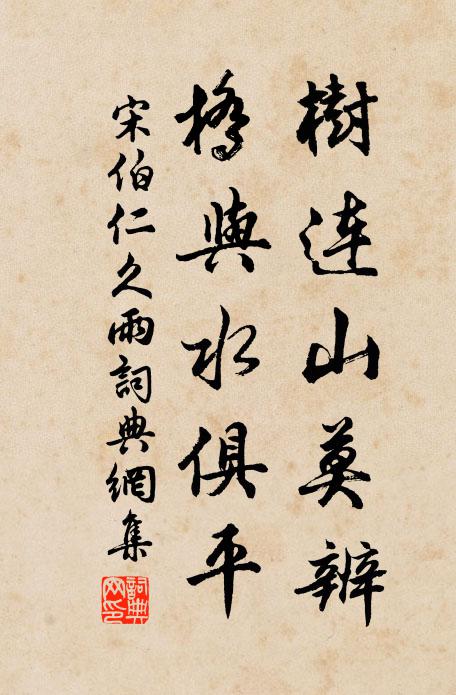 樹連山莫辨
橋與水俱平
宋伯仁久雨詞典網集
詞典網印